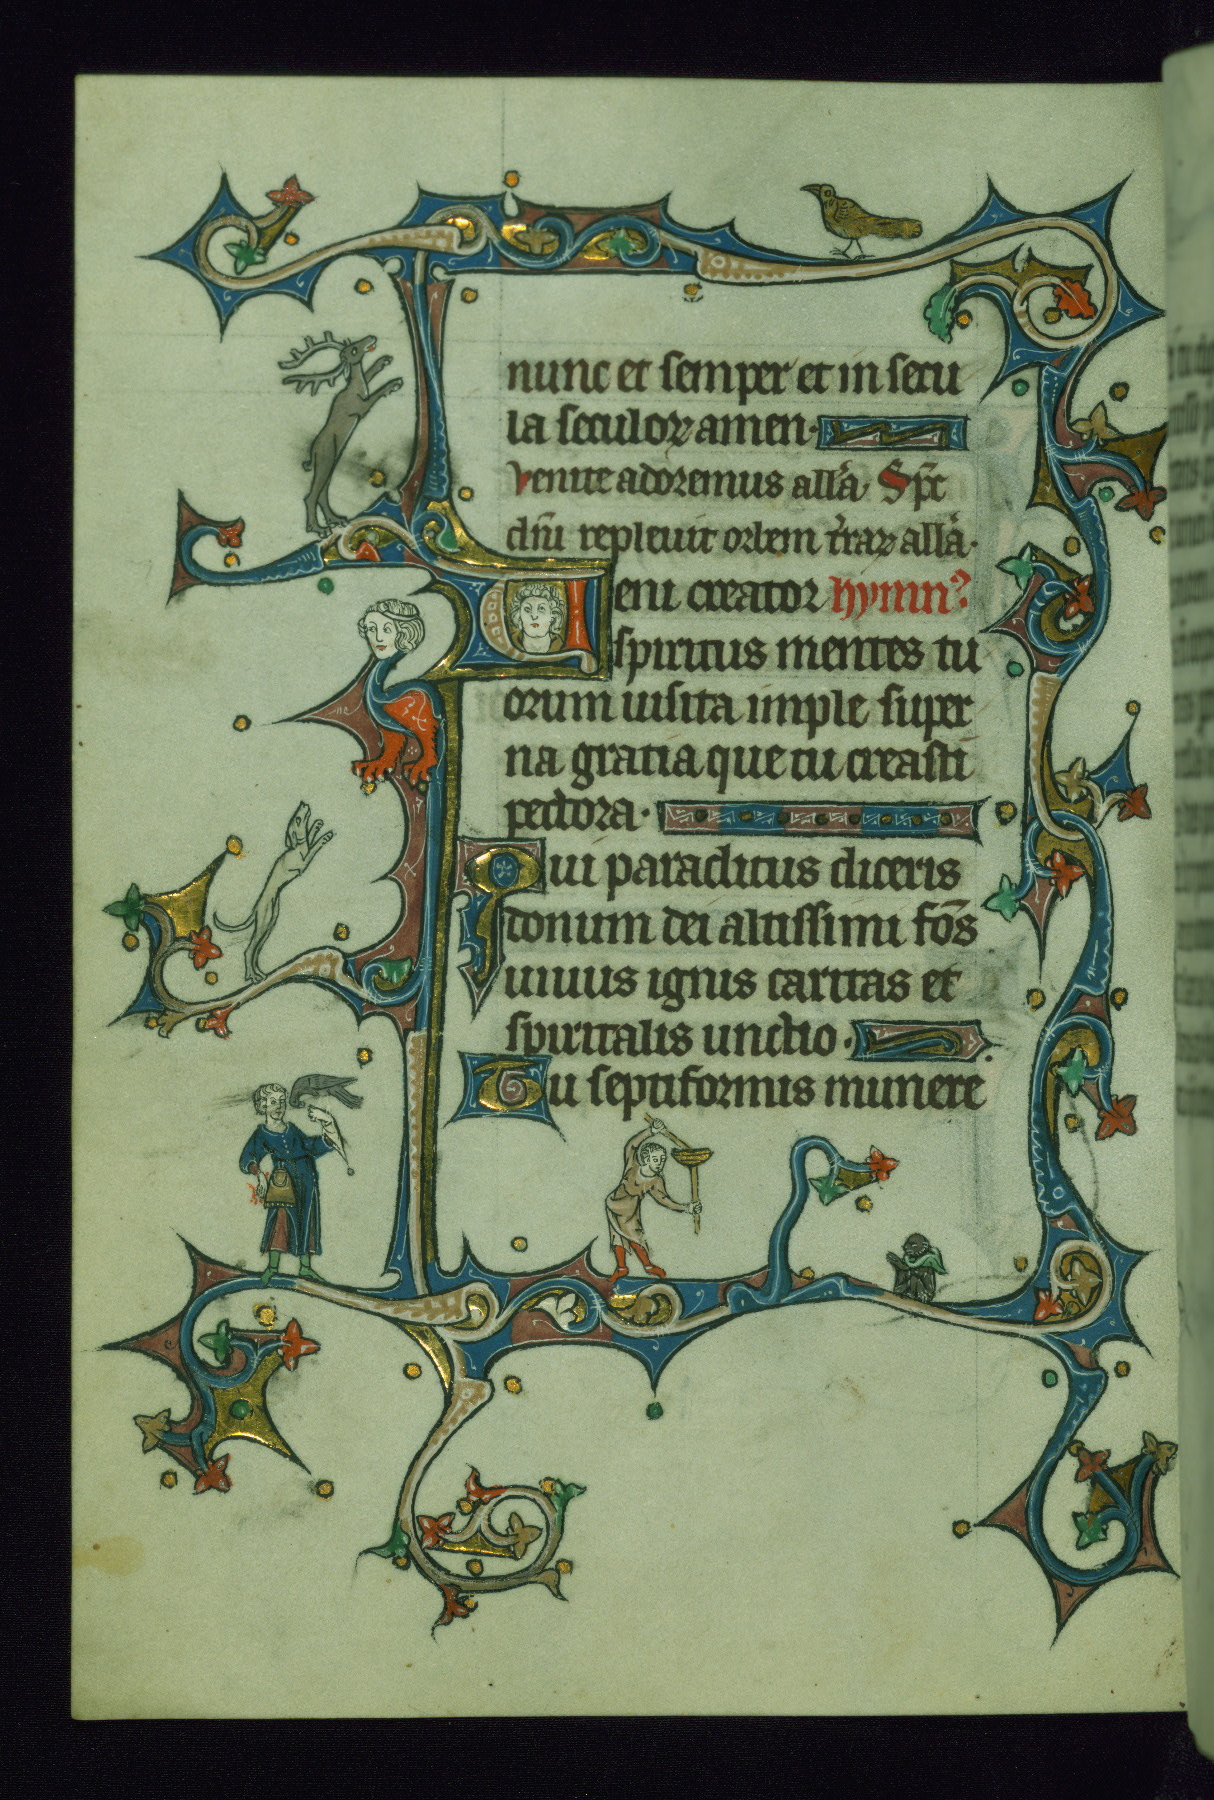 nunc et semper et in secu
la seculoꝝ amen·
Venite adoremus all'a Sp̄c
dn̄i repleuit orbem t'raꝝ all'a·
eni creator hymn9
spiritus mentes tu
orum uisita imple super
na gratia que tu creasti
pectora·
Qui paraclitus diceris
donum dei altissimi fōs
uiuus ignis caritas et
spiritalis unctio·
Tu septiformis munere